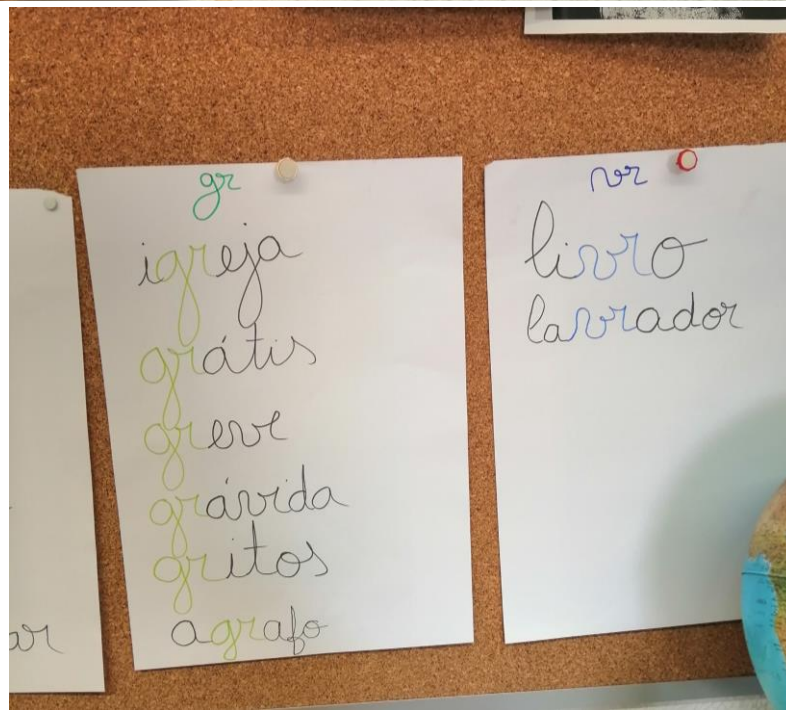 gr
igreja
grátis
greve
grávida
gritos
agrafo
vr
livro
lavrador